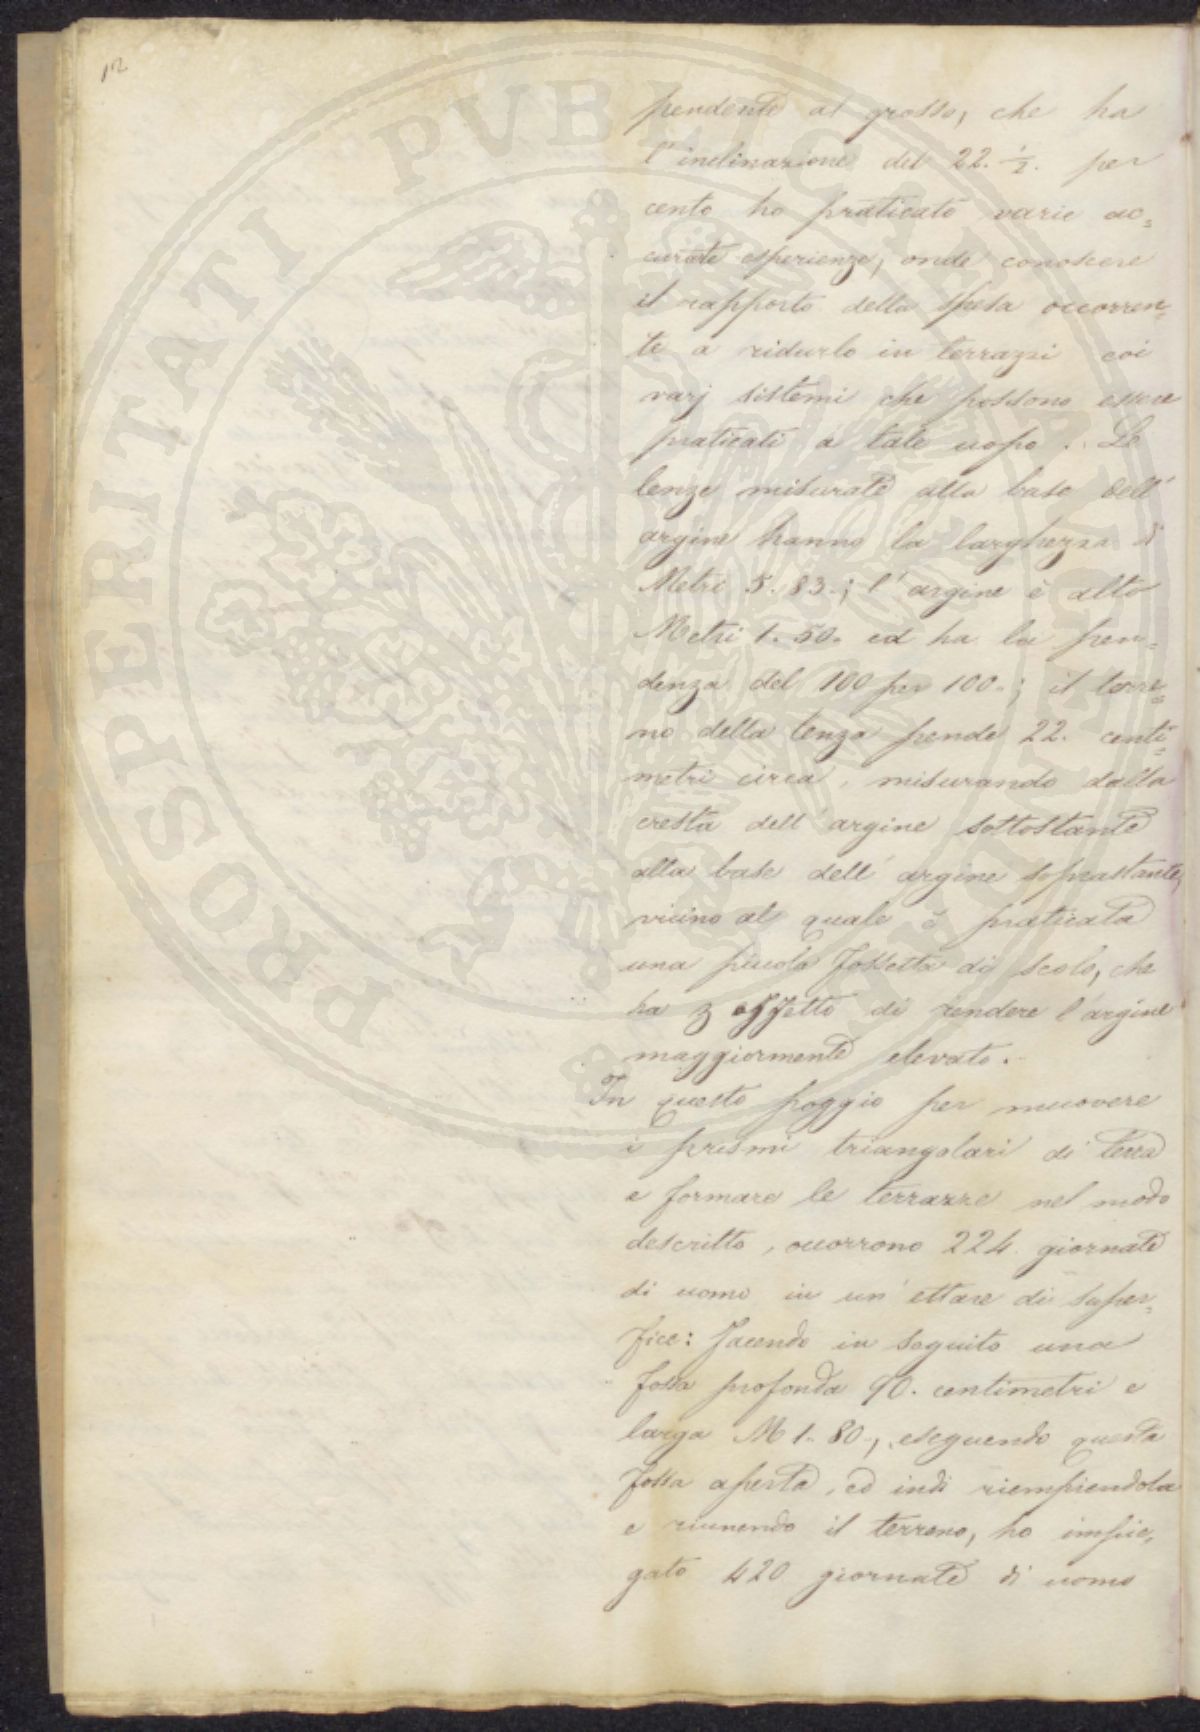 12
pendente al grosso, che ha
l'inclinazione del 22. ½. per
cento ho praticato varie ac=
curate esperienze, onde conoscere
il rapporto della spesa occorren=
te a ridurlo in terrazzi coi
varj sistemi che possono essere
praticati a tale uopo. Le
lenze misurate alla base dell'
argine hanno la larghezza di
Metri 5. 83.; l'argine è alto
Metri 1. 50. ed ha la pen=
denza del 100 per 100.; il terre=
no della lenza pende 22. centi=
metri circa, misurando dalla
cresta dell'argine sottostante
alla base dell'argine soprastante,
vicino al quale è praticata
una piccola fossetta di scolo, che
ha p oggetto di rendere l'argine
maggiormente elevato.
In questo poggio per muovere
i prismi triangolari di terra
e formare le terrazze nel modo
descritto, occorrono 224 giornate
di uomo in un'ettare di super=
fice: facendo in seguito una
fossa profonda 90. centimetri e
larga M 1. 80., eseguendo questa
fossa aperta, ed indi riempiendola
e riunendo il terreno, ho impie=
gato 420 giornate di uomo
PROSPERITATI PVBLICAE AVGENDAE